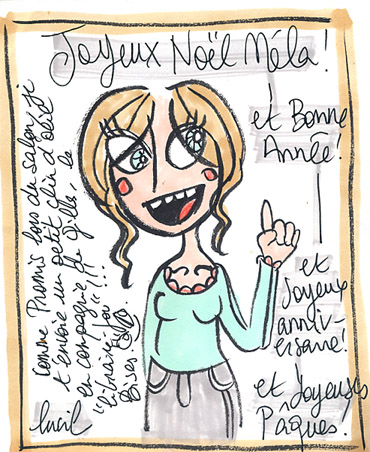 Joyeux Noël Méla!
et Bonne
Année!
et
Joyeux
anniv-
ersaire!
et Joyeuses
Pâques!
Comme Promis lors du salon, je
t'envoie un petit clin d'oeil
en compagnie de Gille, le
"libraire fou"!!!
Bises
lucil